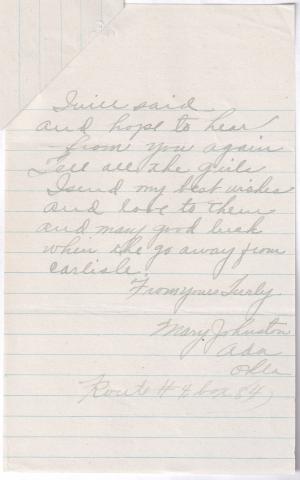 I will said
and hope to hear
from you again
Tell all the girls
I send my best wishes
and love to them
and many good luck
when she go away from
carlisle.
From yours Turly
Mary Johnston
Ada
Okla
Route # 4 box 84